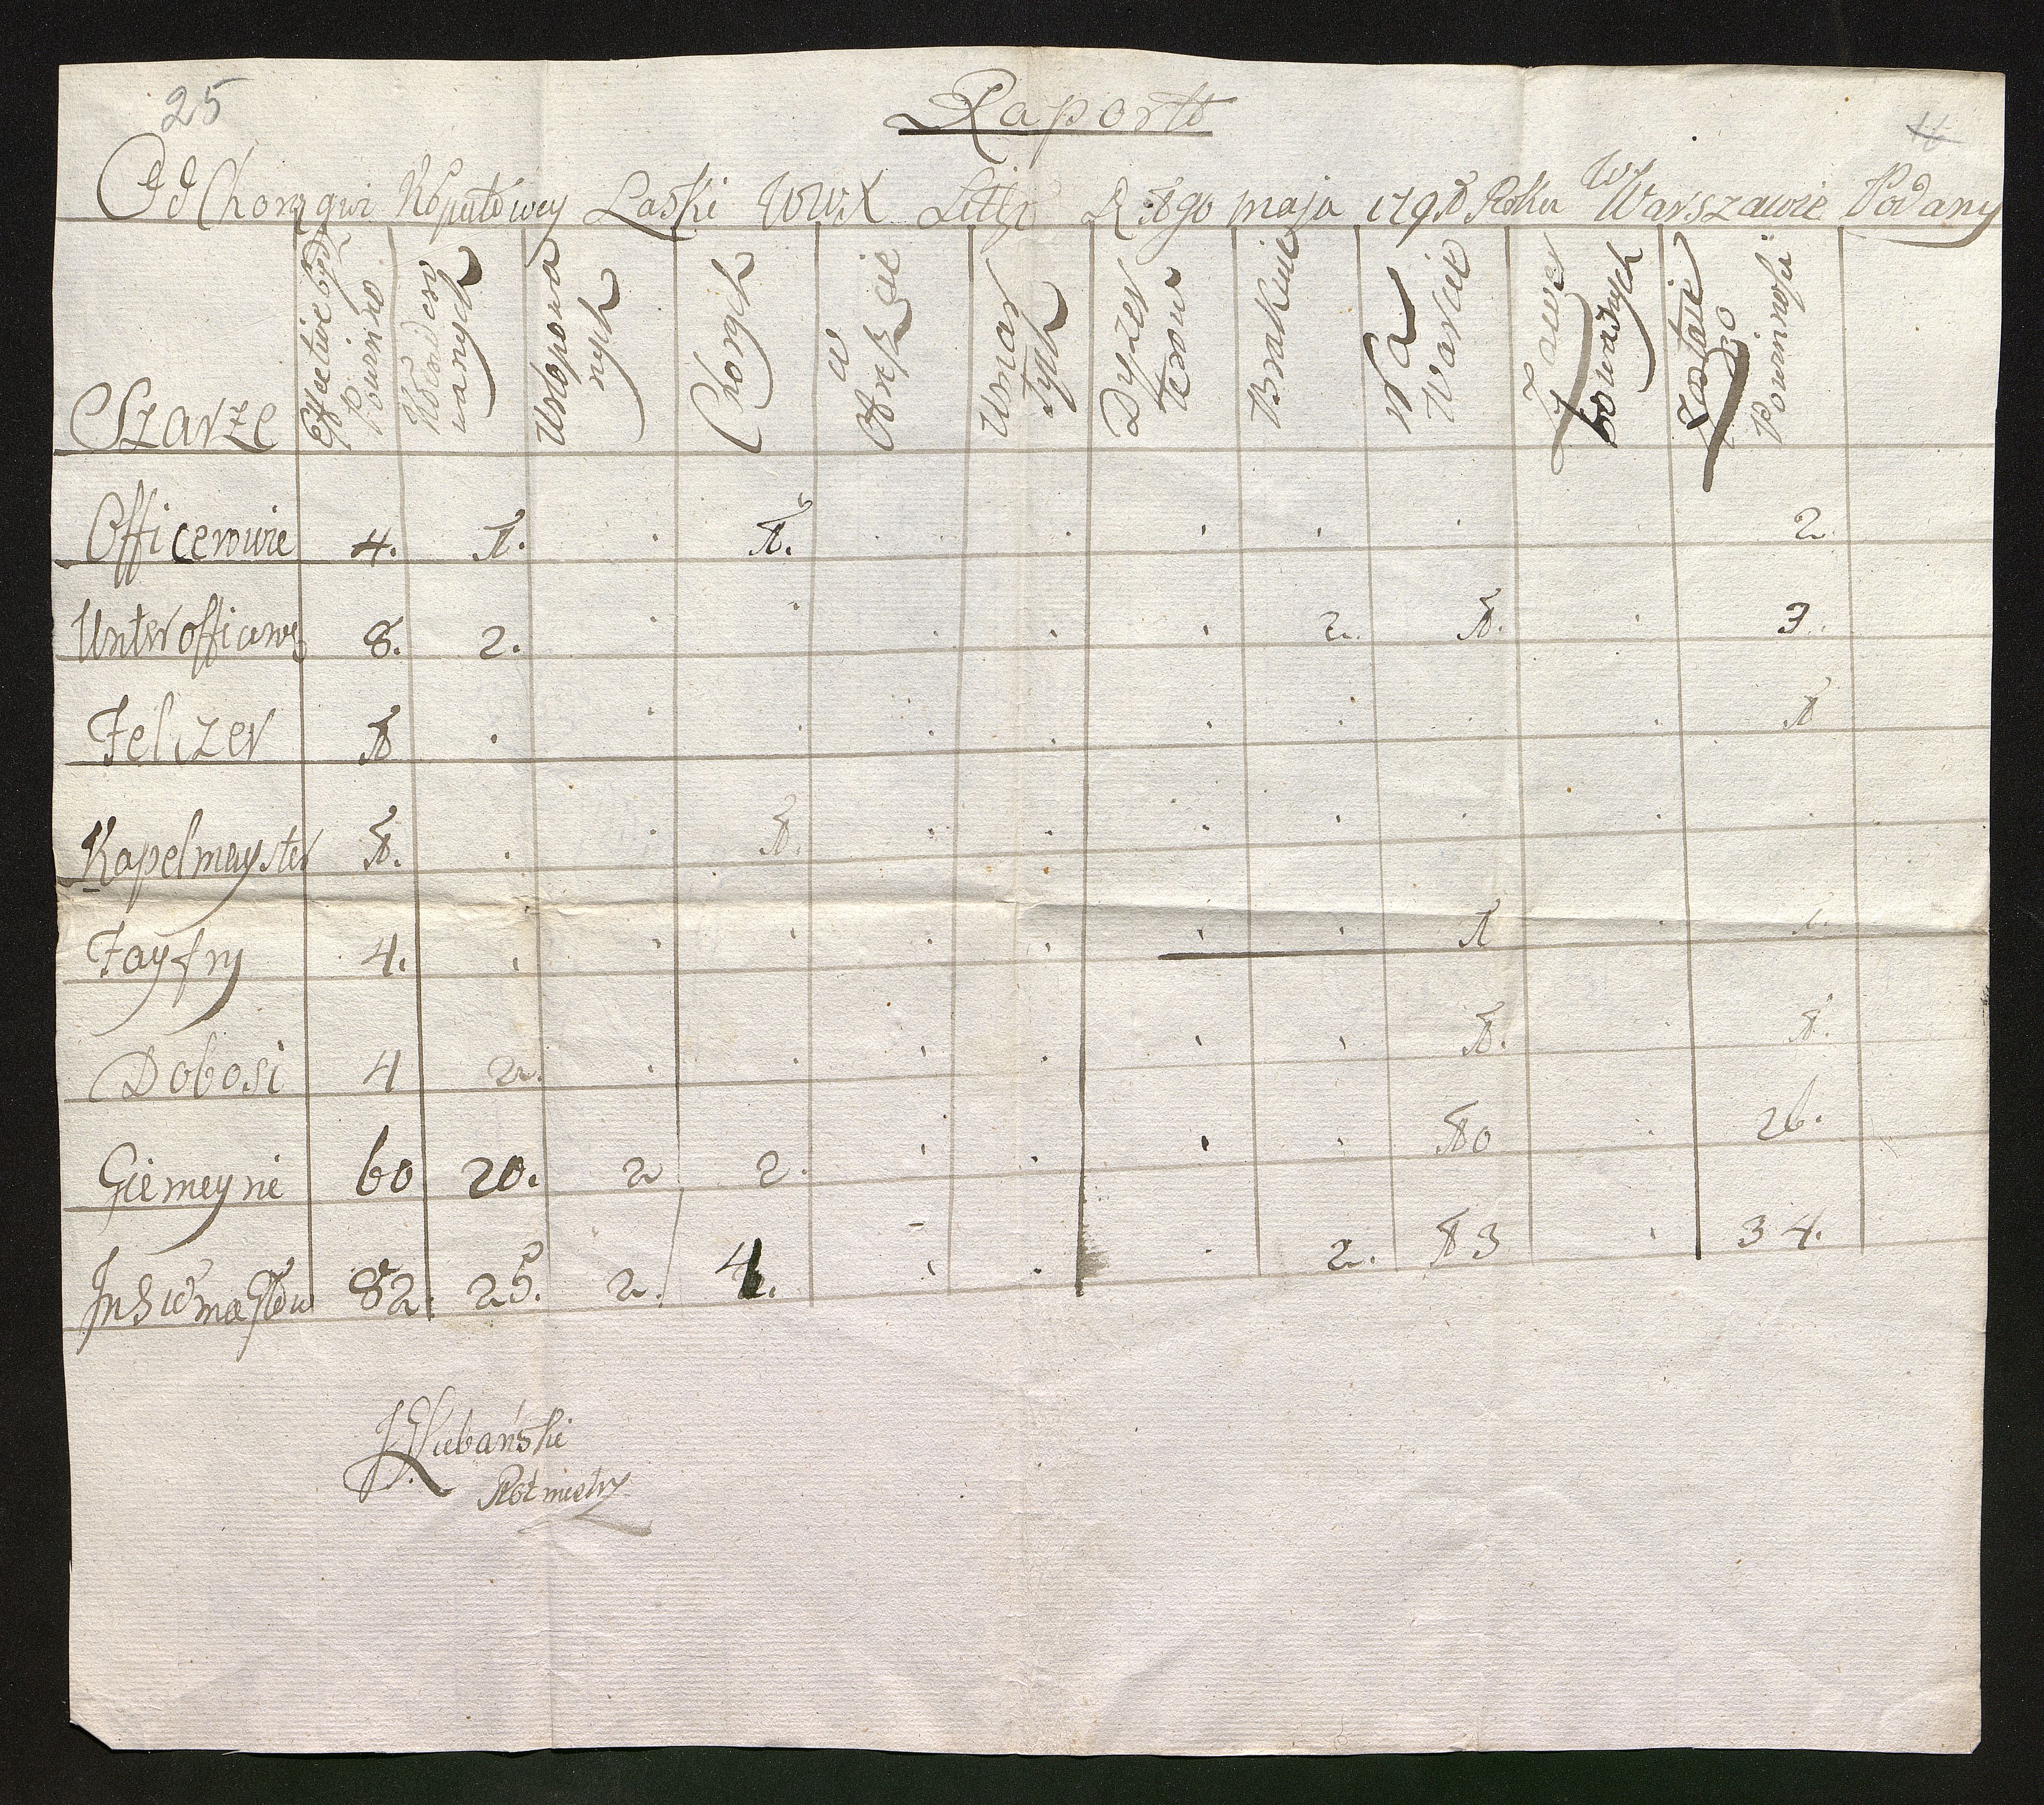 25
Raportt
11
Od Chorągwi Kōputowey Laski WWX Littgo 1go maja 1791 Roku w Warszawie Podany
Szarze | Effective bydź Powinno | Kōmōdero wanych | Urlopowa nych | Chorych | w Areszcie | Umar łych | Dyzer terow | Brakuie | Na Warcie | Zawa kowanych | Zostaie do Parōwania
Officerowie 4. 1. . 1. . . . . . 2
Unterofficerow 8. 2. . . . . . 2. 1. . 3.
Felczer 1 . . . . . . . . . 1
Kapelmayster 1. . . 1. . . . . . .
Fayfry 4. . . . . . . . 1 . 1.
Dobosi 4 2. . . . . . . 1. . 1.
Giemeyni 60 20. 2 2. . . . . 10 . 26.
In Sūma 82. 25. 2. 4. . . . 2. 13 . 34.
Rotmistrz